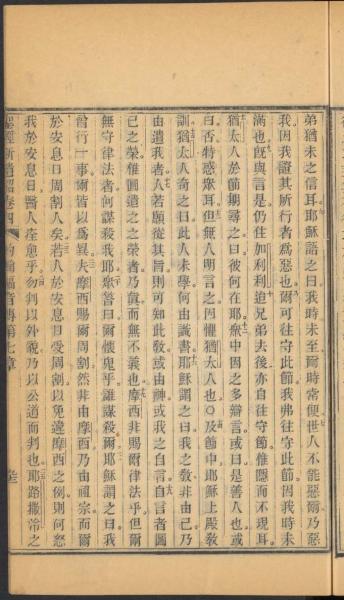 弟猶未之信耳耶穌語之曰我時未至爾時常便世人不能惡爾乃惡
我因我證其所行者為惡也爾可往守此節我弗往守此節因我時未
滿也旣與言是仍住加利利迨兄弟去後亦自往守節惟隱而不現耳
猶太人於節期尋之曰彼何在耶衆中因之多辯言或曰是善人也或
曰否特惑衆耳但無人明言之因懼猶太人也〇及節中耶穌上殿敎
訓猶太人奇之曰此人未學何由識書耶穌謂之曰我之敎非由己乃
由遣我者人若願從其旨則可知此敎或由神或我之自言自言者圖
己之榮惟圖遣之之榮者乃眞而無不義也摩西非賜爾律法乎但爾
無守律法者何謀殺我耶衆答曰爾懷鬼乎誰謀殺爾耶穌謂之曰我
曾行一事爾皆以為異夫摩西賜爾周割然非由摩西乃由祖宗而爾
於安息日周割人矣若人於安息日受周割以免違摩西之例則何怒
我於安息日醫人痊愈乎勿判以外觀乃以公道而判也耶路撒冷之
約翰福音傳第七章